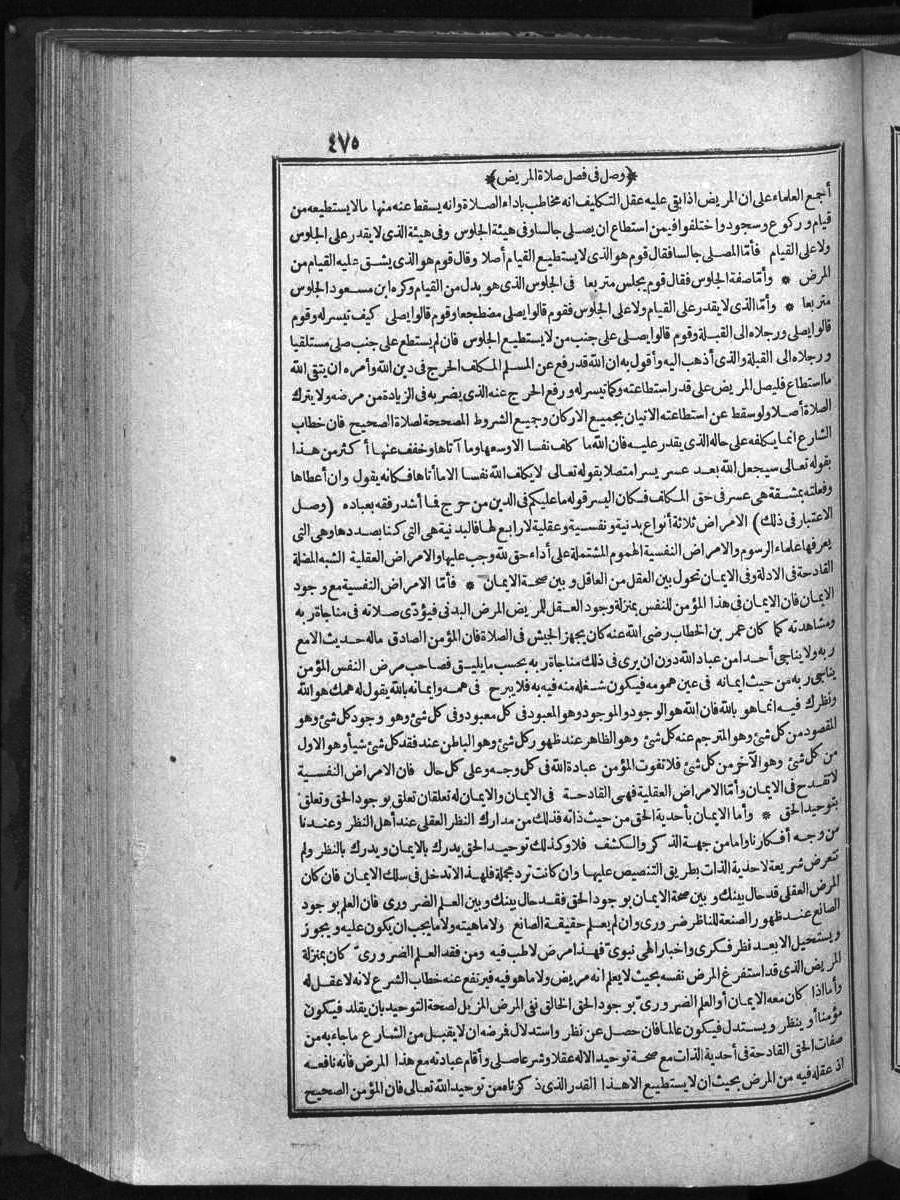 ٤٧٥
﴿وصل فى فصل صلاة المريض﴾
أجمع العلماء على ان المريض اذا بقى عليه عقل التكليف انه مخاطب باداء الصلاة وانه يسقط عنه منها ما لا يستطيعه من
قيام وركوع وسجود واختلفوا فيمن استطاع ان يصلى جالسا وفى هيئة الجلوس وفى هيئة الذى لا يقدر على الجلوس
ولا على القيام فأمّا المصلى جالسا فقال قوم هو الذى لا يستطيع القيام أصلا وقال قوم هو الذى يشق عليه القيام من
المرض * وأمّا صفة الجلوس فقال قوم يجلس متربعا فى الجلوس الذى هو بدل من القيام وكره ابن مسعود الجلوس
متربعا * وأمّا الذى لا يقدر على القيام ولا على الجلوس فقوم قالوا يصلى مضطجعا وقوم قالوا يصلى كيف تيسر له وقوم
قالوا يصلى ورجلاه الى القبلة وقوم قالوا يصلى على جنب من لا يستطيع الجلوس فان لم يستطع على جنب صلى مستلقيا
ورجلاه الى القبلة والذى أذهب اليه وأقول به ان الله قد رفع عن المسلم المكلف الحرج فى دين الله وأمره ان يتقى الله
ما استطاع فليصل المريض على قدر استطاعته وكما تيسر له ورفع الحرج عنه الذى يضر به فى الزيادة من مرضه ولا يترك
الصلاة أصلا ولو سقط عن استطاعته الاتيان بجميع الاركان وجميع الشروط المصححة لصلاة الصحيح فان خطاب
الشارع انما يكلفه على حاله الذى يقدر عليه فان الله ما كلف نفسا الا وسعها وما آتاها وخفف عنها أكثر من هذا
بقوله تعالى سيجعل الله بعد عسر يسرا متصلا بقوله تعالى لا يكلف الله نفسا الا ما آتاها فكانه يقول وان أعطاها
وفعلته بمشقة هى عسر فى حق المكلف فكان اليسر قوله ما عليكم فى الدين من حرج فما أشد رفقه بعباده (وصل
الاعتبار فى ذلك) الامراض ثلاثة أنواع بدنية ونفسية وعقلية لا رابع لها فالبدنية هى التى كنا بصددها وهى التى
يعرفها علماء الرسوم والامراض النفسية الهموم المشتملة على أداء حق لله وجب عليها والامراض العقلية الشبه المضلة
القادحة فى الادلة وفى الايمان تحول بين العقل من العاقل وبين صحة الايمان * فأمّا الامراض النفسية مع وجود
الايمان فان الايمان فى هذا المؤمن للنفس بمنزلة وجود العقل للمريض المرض البدنى فيؤدّى صلاته فى مناجاة ربه
ومشاهدته كما كان عمر بن الخطاب رضى الله عنه كان يجهز الجيش فى الصلاة فان المؤمن الصادق ماله حديث الا مع
ربه ولا يناجى أحدا من عباد الله دون ان يرى فى ذلك مناجاة ربه بحسب ما يليق فصاحب مرض النفس المؤمن
يناجى ربه من حيث ايمانه فى عين همومه فيكون شغله منه فيه به فلا يبرح فى همه وايمانه بالله يقول له همك هو الله
ونظرك فيه انما هو بالله فان الله هو الوجود والموجود وهو المعبود فى كل معبود وفى كل شئ وهو وجود كل شئ وهو
المقصود من كل شئ وهو المترجم عنه كل شئ وهو الظاهر عند ظهور كل شئ وهو الباطن عند فقد كل شئ شيأ وهو الاول
من كل شئ وهو الآخر من كل شئ فلا تفوت المؤمن عبادة الله فى كل وجه وعلى كل حال فان الامراض النفسية
لا تقدح فى الايمان وأمّا الامراض العقلية فهى القادحة فى الايمان والايمان له تعلقان تعلق بوجود الحق وتعلق
بتوحيد الحق * وأما الايمان بأحدية الحق من حيث ذاته فذلك من مدارك النظر العقلى عند أهل النظر وعندنا
من وجه أفكارنا واما من جهة الذكر والكشف فلا وكذلك توحيد الحق يدرك بالايمان ويدرك بالنظر ولم
تتعرض شريعة لاحدية الذات بطريق التنصيص عليها وان كانت ترد مجملة فلهذا لا تدخل فى سلك الايمان فان كان
المرض العقلى قد حال بينك وبين صحة الايمان بوجود الحق فقد حال بينك وبين العلم الضرورى فان العلم بوجود
الصانع عند ظهور الصنعة للناظر ضرورى وان لم يعلم حقيقة الصانع ولا ماهيته ولا ما يجب ان يكون عليه ويجوز
ويستحيل الا بعد نظر فكرى واخبار الهى نبوى فهذا مرض لا طب فيه ومن فقد العلم الضرورىّ كان بمنزلة
المريض الذى قد استفرغ المرض نفسه بحيث لا يعلم انه مريض ولا ما هو فيه فيرتفع عنه خطاب الشرع لانه لا عقل له
وأما اذا كان معه الايمان أو العلم الضرورىّ بوجود الحق الخالق نفى المرض المزيل لصحة التوحيد بان يقلد فيكون
مؤمنا أو ينظر ويستدل فيكون عالما فان حصل عن نظر واستدلال فرضه ان لا يقبل من الشارع ما جاء به من
صفات الحق القادحة فى أحدية الذات مع صحة توحيد الاله عقلا وشرعا صلى وأقام عبادته مع هذا المرض فانه نافعه
اذ عقله فيه من المرض بحيث ان لا يستطيع الا هذا القدر الذى ذكرناه من توحيد الله تعالى فان المؤمن الصحيح